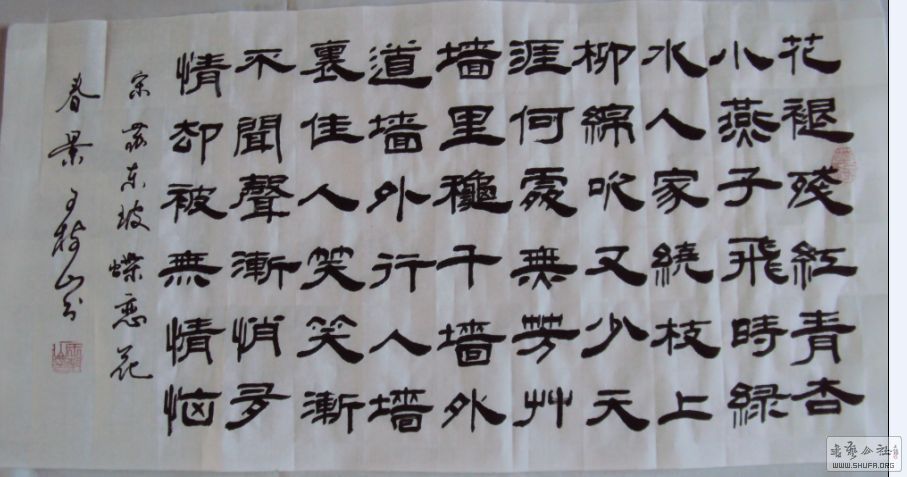 花褪殘紅青杏
小燕子飛時綠
水人家繞枝上
柳綿吹又少天
涯何處無芳艸
墙里穐千墙外
道墙外行人墙
裏佳人笑笑漸
不聞聲漸悄多
情却被無情恼
宋蘇东坡蝶恋花
春景
书艺公社
WWW.SHUFA.ORG